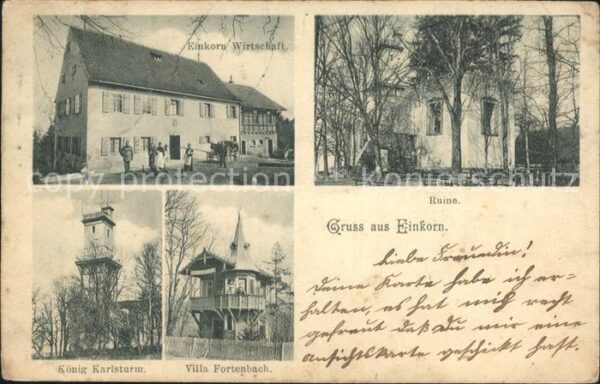 Einkorn Wirtschaft.
Ruine.
Gruss aus Einkorn.
König Karlsturm.
Villa Fortenbach.
liebe Freundin!
Deine Karte habe ich er-
halten, es hat mich recht
gefreut daß Du mir eine
Ansichtskarte geschickt hast.
copyright-kontorschutz